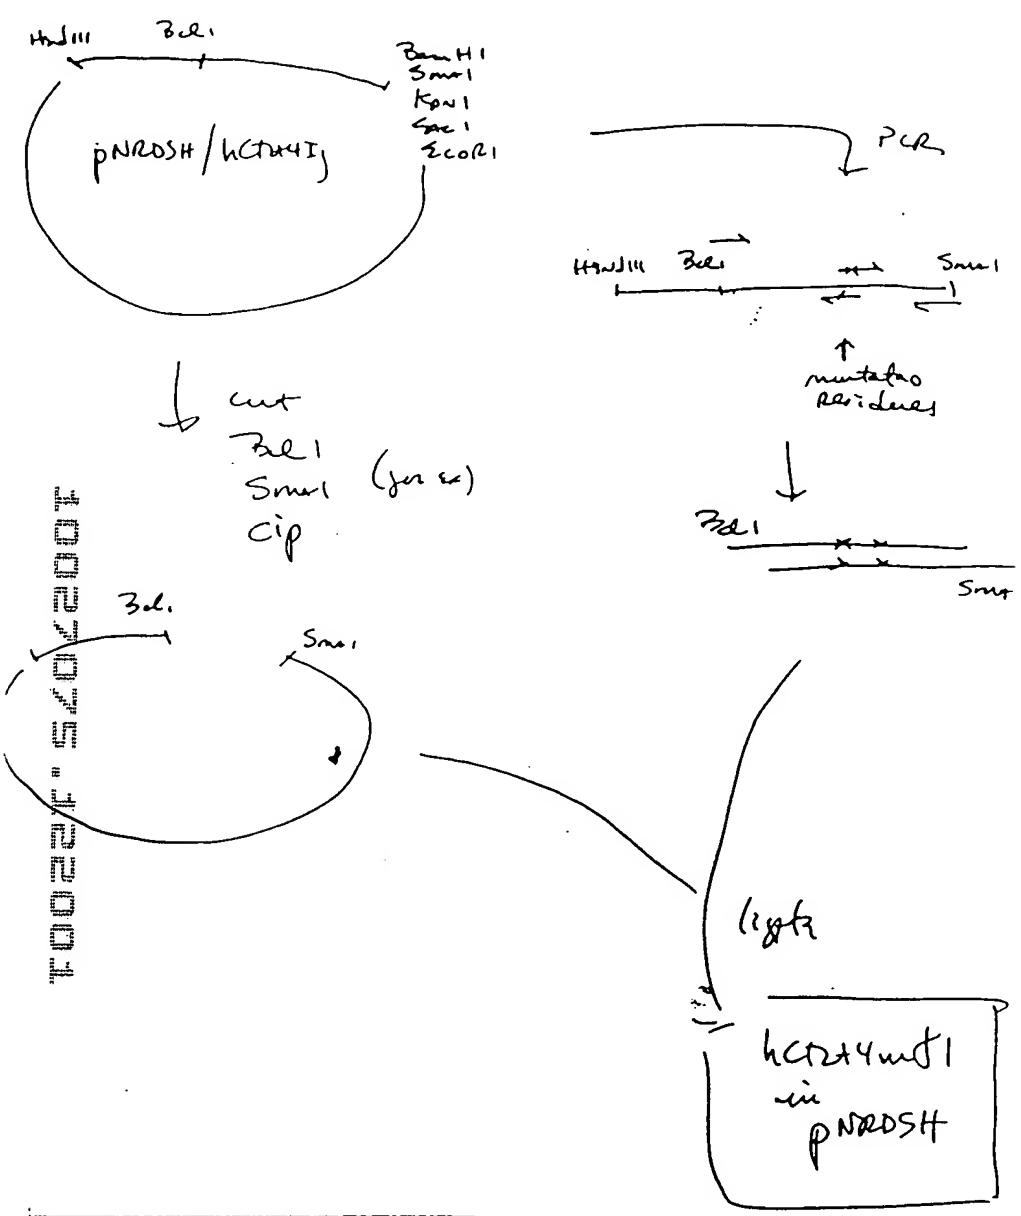 HindIII Bcl1
BamH1
Sma1
Kpn1
Sac1
EcoR1
pNRDSH/hCTLA4Ig
PCR
HindIII Bcl1 Sma1
mutate
residues
cut
Bcl1
Sma1 (for ex)
cip
Bcl1
Sma
Bcl1
Sma1
10027075.122001
ligate
hCTLA4mt1
in
pNRDSH